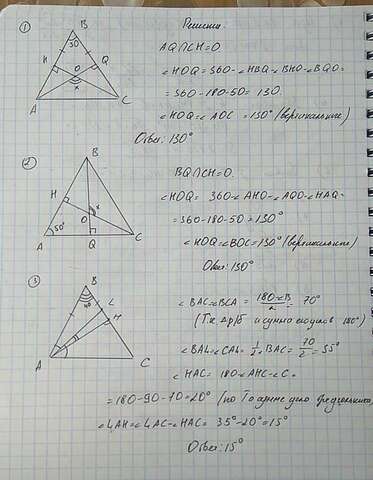 ①
Решение
B
30
H
O
Q
x
A
C
AQ∩CH=O
∠HOQ=360-∠HBQ-∠BHO-∠BQO=
=360-180-50=130.
∠HOQ=∠AOC=130° (вертикальные)
Ответ: 130°
②
B
H
x
O
50°
A
Q
C
BQ∩CH=O.
∠HOQ= 360-∠AHO-∠AQO-∠HAQ=
=360-180-50=130°
∠HOQ=∠BOC=130° (вертикальные)
Ответ: 130°
③
B
40
L
H
A
C
∠BAC=∠BCA = (180-∠B)/2 = 70°
(Тк Δ р/б и сумма углов 180°)
∠BAL=∠CAL= 1/2∠BAC= 70/2=35°
∠HAC= 180-∠AHC-∠C=
=180-90-70=20° (по
∠LAH=∠LAC-∠HAC= 35°-20°=15°
Ответ: 15°